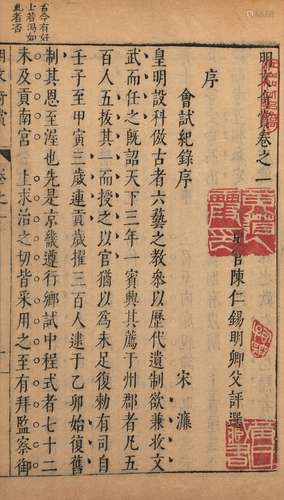 明文奇賞卷之一
官陳仁錫明卿父評選
序
會試紀錄序 宋濂
皇明設科倣古者六藝之教參以歷代遺制欲兼收文
武而任之既詔天下三年一賓興其薦于州郡者凡五
百人五拔其一而授之以官猶以為未足復勅有司自
壬子至甲寅三歲連貢歲擢三百人逮于乙卯始復舊
制其恩至渥也先是京畿遵行鄉試中程式者七十二
未及貢南宮 上求治之切皆采用之至有拜監察御
古今有好
士若渴如
此者否